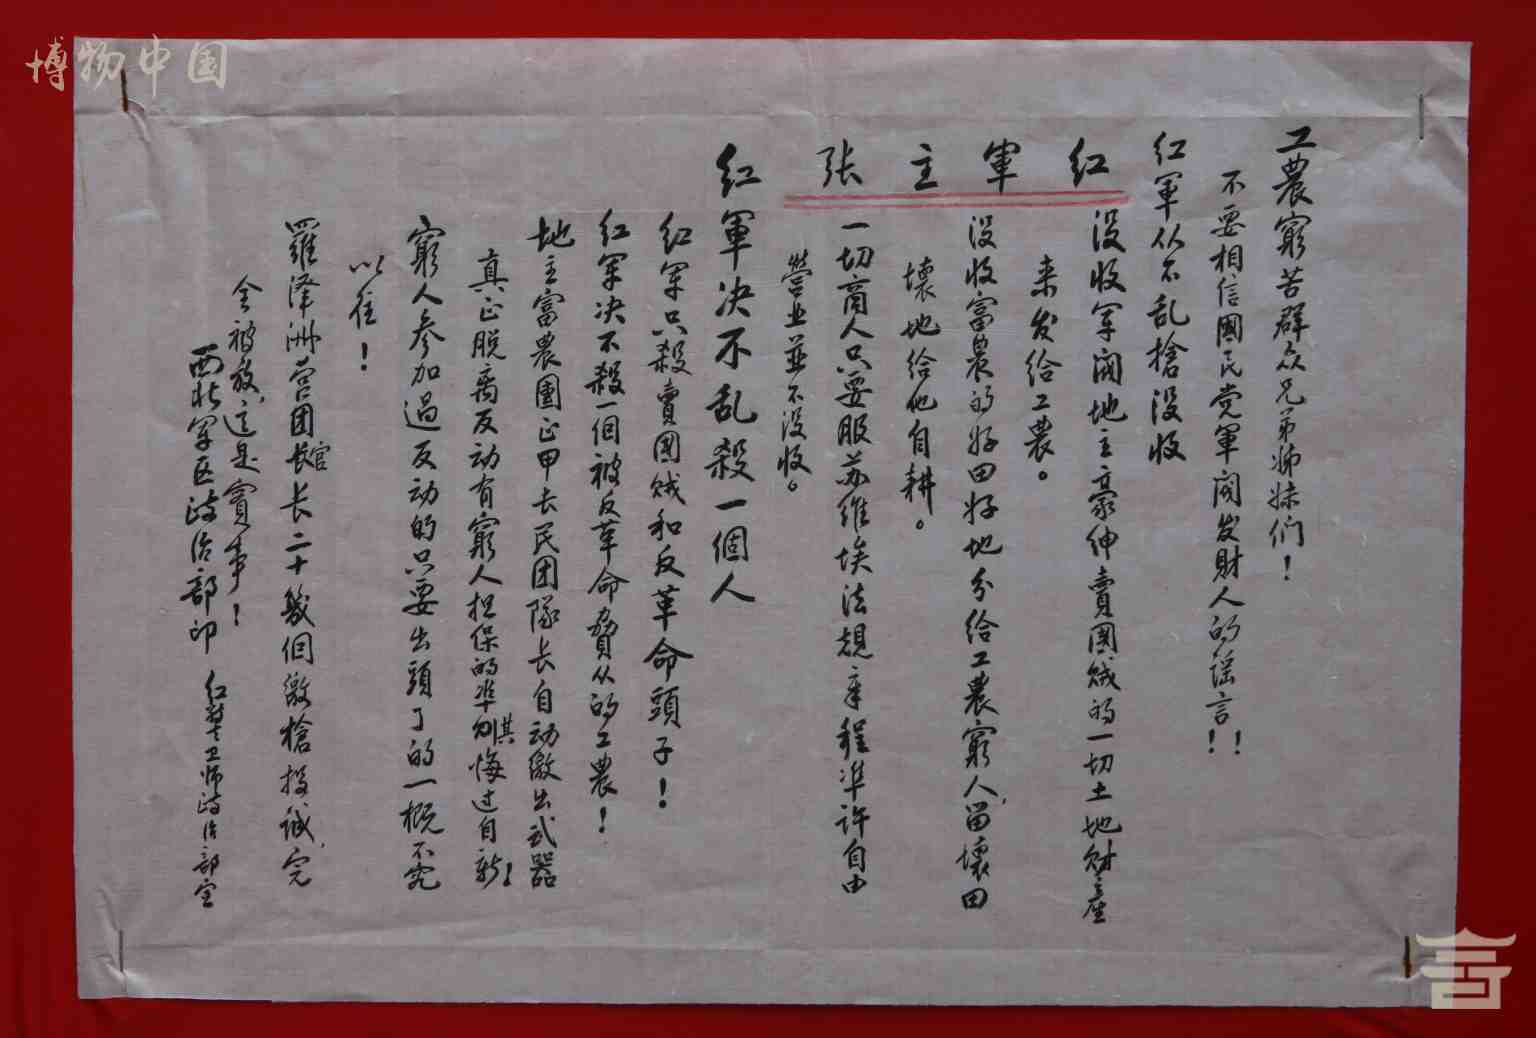 工農窮苦群众兄弟姊妹们！
不要相信國民党軍閥发財人的謡言！！
红軍从不乱搶没收
红軍主张
没收军閥地主豪绅賣國贼的一切土地財産
来发给工農。
没收富農的好田好地分给工農窮人，留壞田
壞地给他自耕。
一切商人只要服苏维埃法規章程准许自由
营业並不没收。
红軍决不乱殺一個人
红军只殺賣國贼和反革命頭子！
红军决不殺一個被反革命脅从的工農！
地主富農團正甲长民团隊长自动缴出武器
真正脱离反动有窮人担保的准其悔过自新！
窮人参加過反动的只要出頭了的一概不究
以往！
羅泽洲营团长官长二十幾個缴槍投诚，完
全被放，這是實事！
西北军区政治部印
红 师政治部宣
博物中国